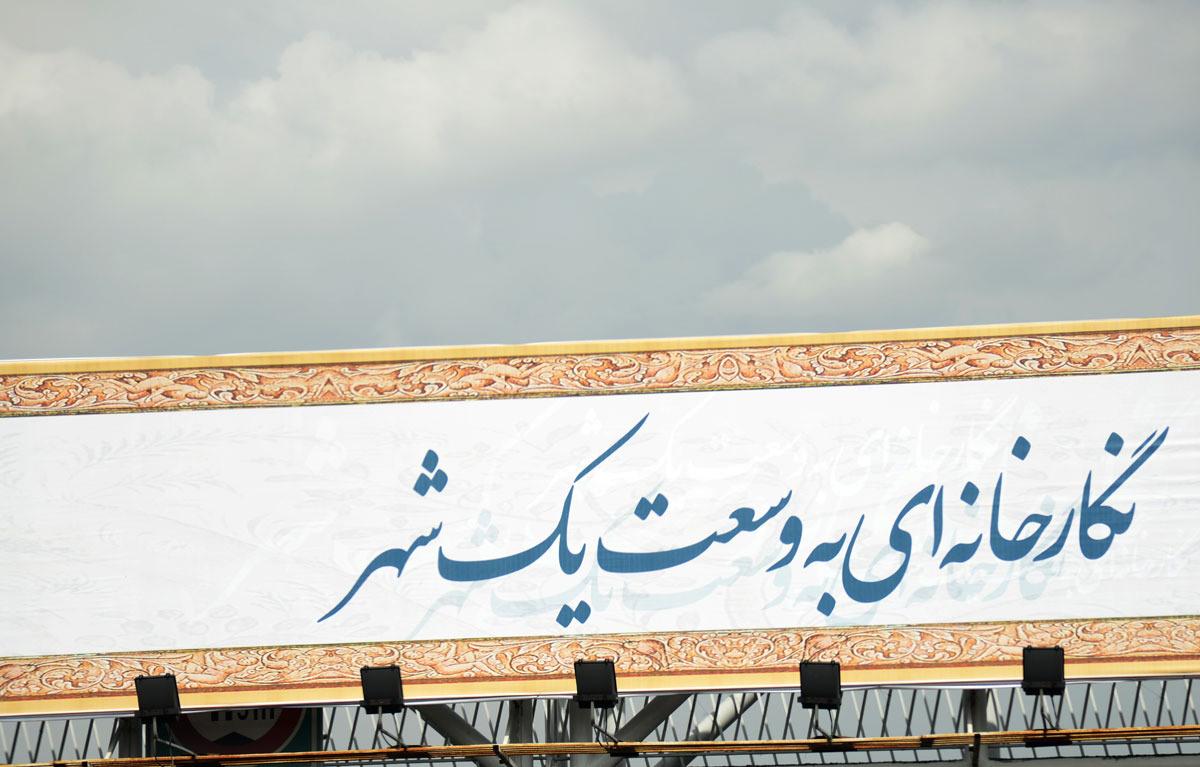 نگارخانه‌ای به وسعت یک شهر